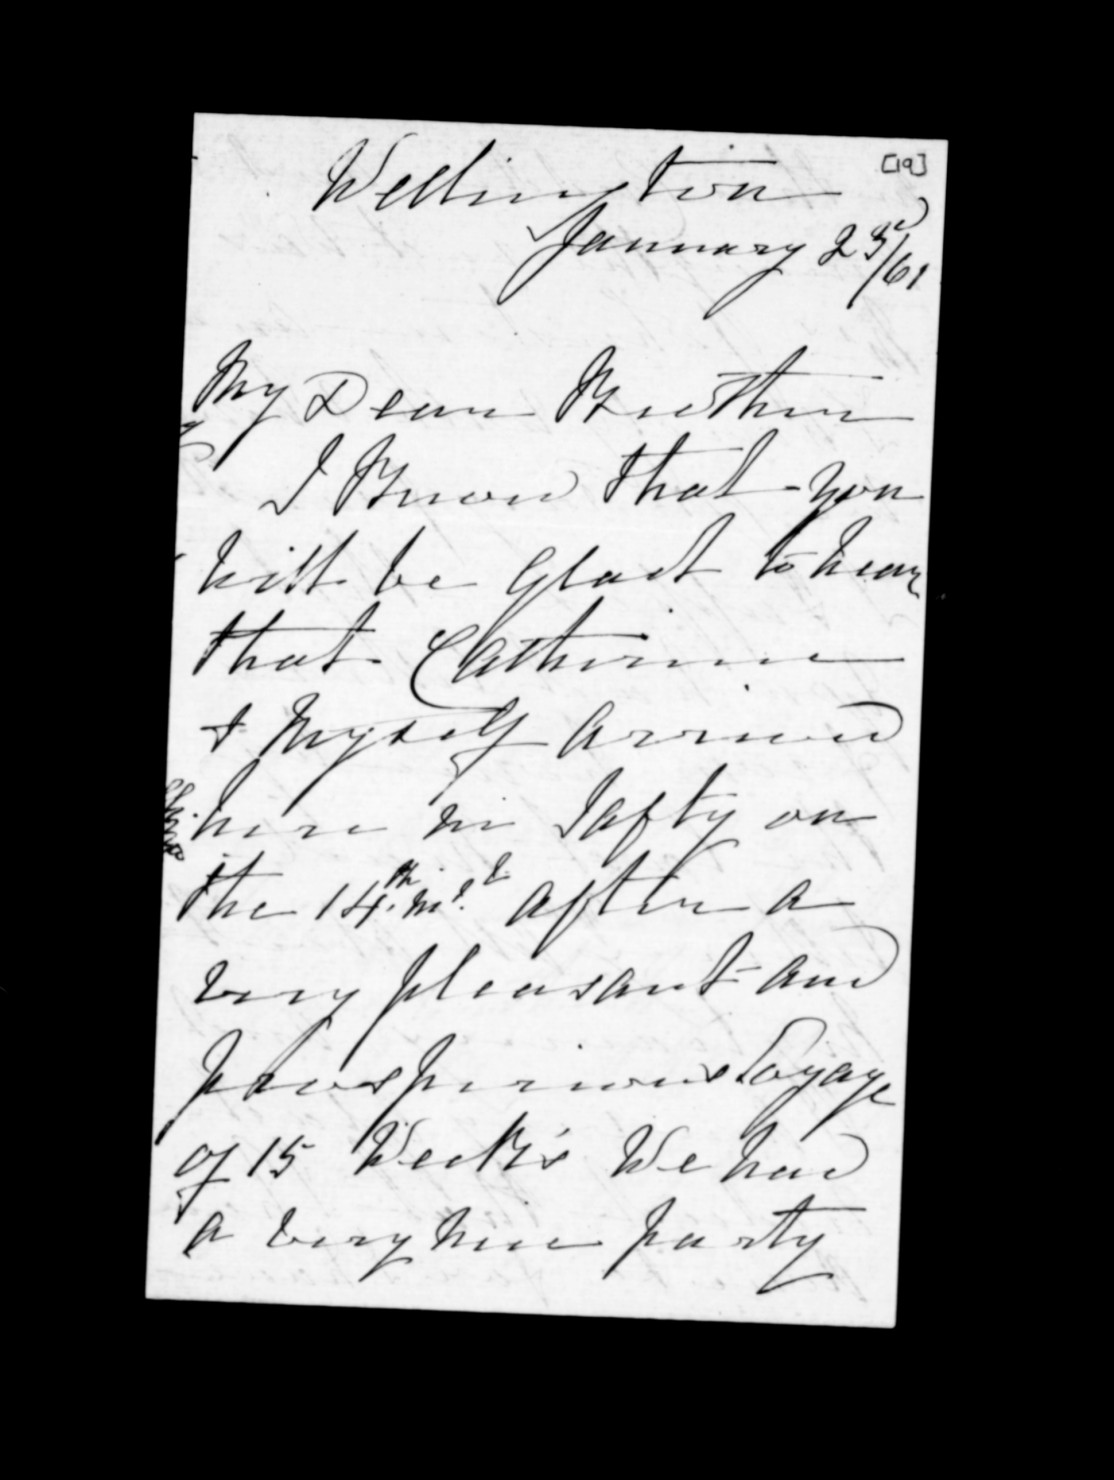 [19]
Wellington
January 23d/61
My Dear Brother
I Know that you
will be Glad to hear
that Catherine
& Myself Arrived
here in Safty on
the 14th inst after a
very pleasant and
prosperious Voyage
of 15 Week's We had
a very nice party